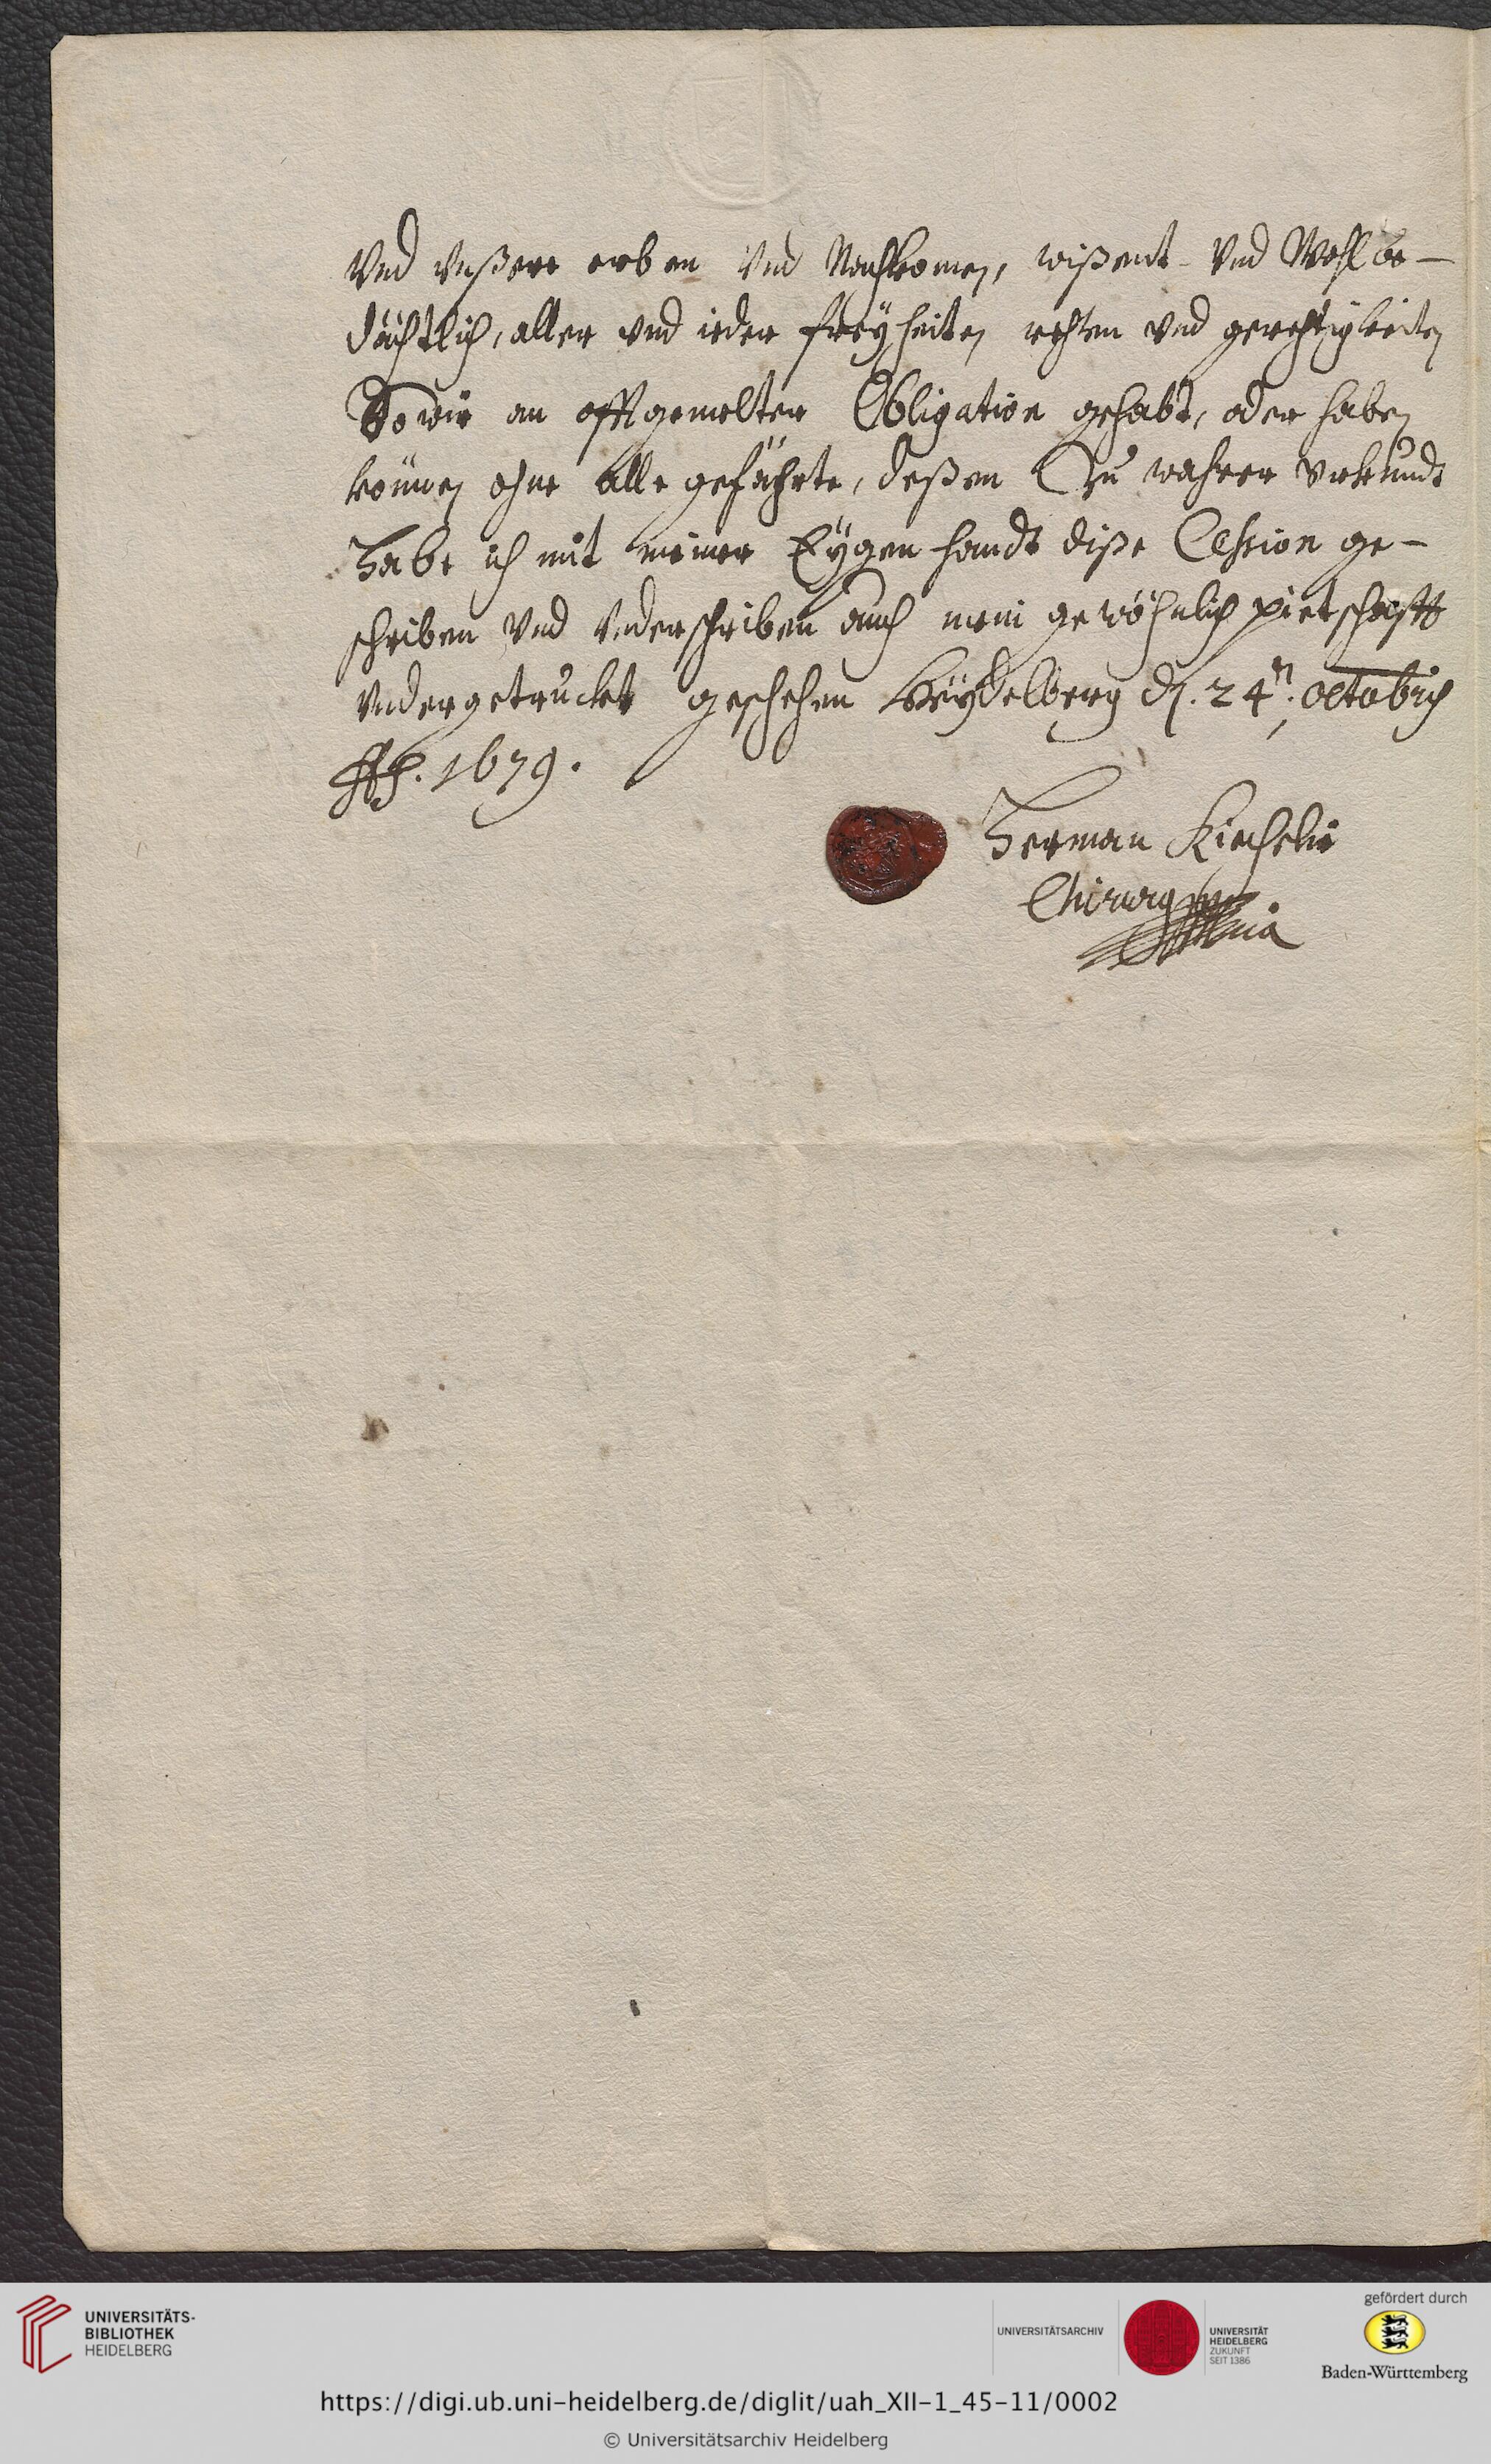 Vnd vnßere erben Vnd Nachkomen, wißent- Vnd Wohlbe-
dächtlich, aller vnd ieder freÿheiten rechten vnd gerechtigkeiten
So wir an offtgemelter Obligation gehabt, oder haben
können ohne alle gefährte, deßen Zu wahrer vrkundt
Habe ich mit meiner Eÿgen handt diße Cession ge-
schriben vnd vnderschriben auch mein gewöhnlich pietschafft
vndergetruckt geschehen Heÿdelberg d. 24n. octobris
1679.
Herman
Chirurgus
UNIVERSITÄTS-
BIBLIOTHEK
HEIDELBERG
UNIVERSITÄTSARCHIV
UNIVERSITÄT
HEIDELBERG
ZUKUNFT
SEIT 1386
gefördert durch
Baden-Württemberg
https://digi.ub.uni-heidelberg.de/diglit/uah_XII-1_45-11/0002
© Universitätsarchiv Heidelberg